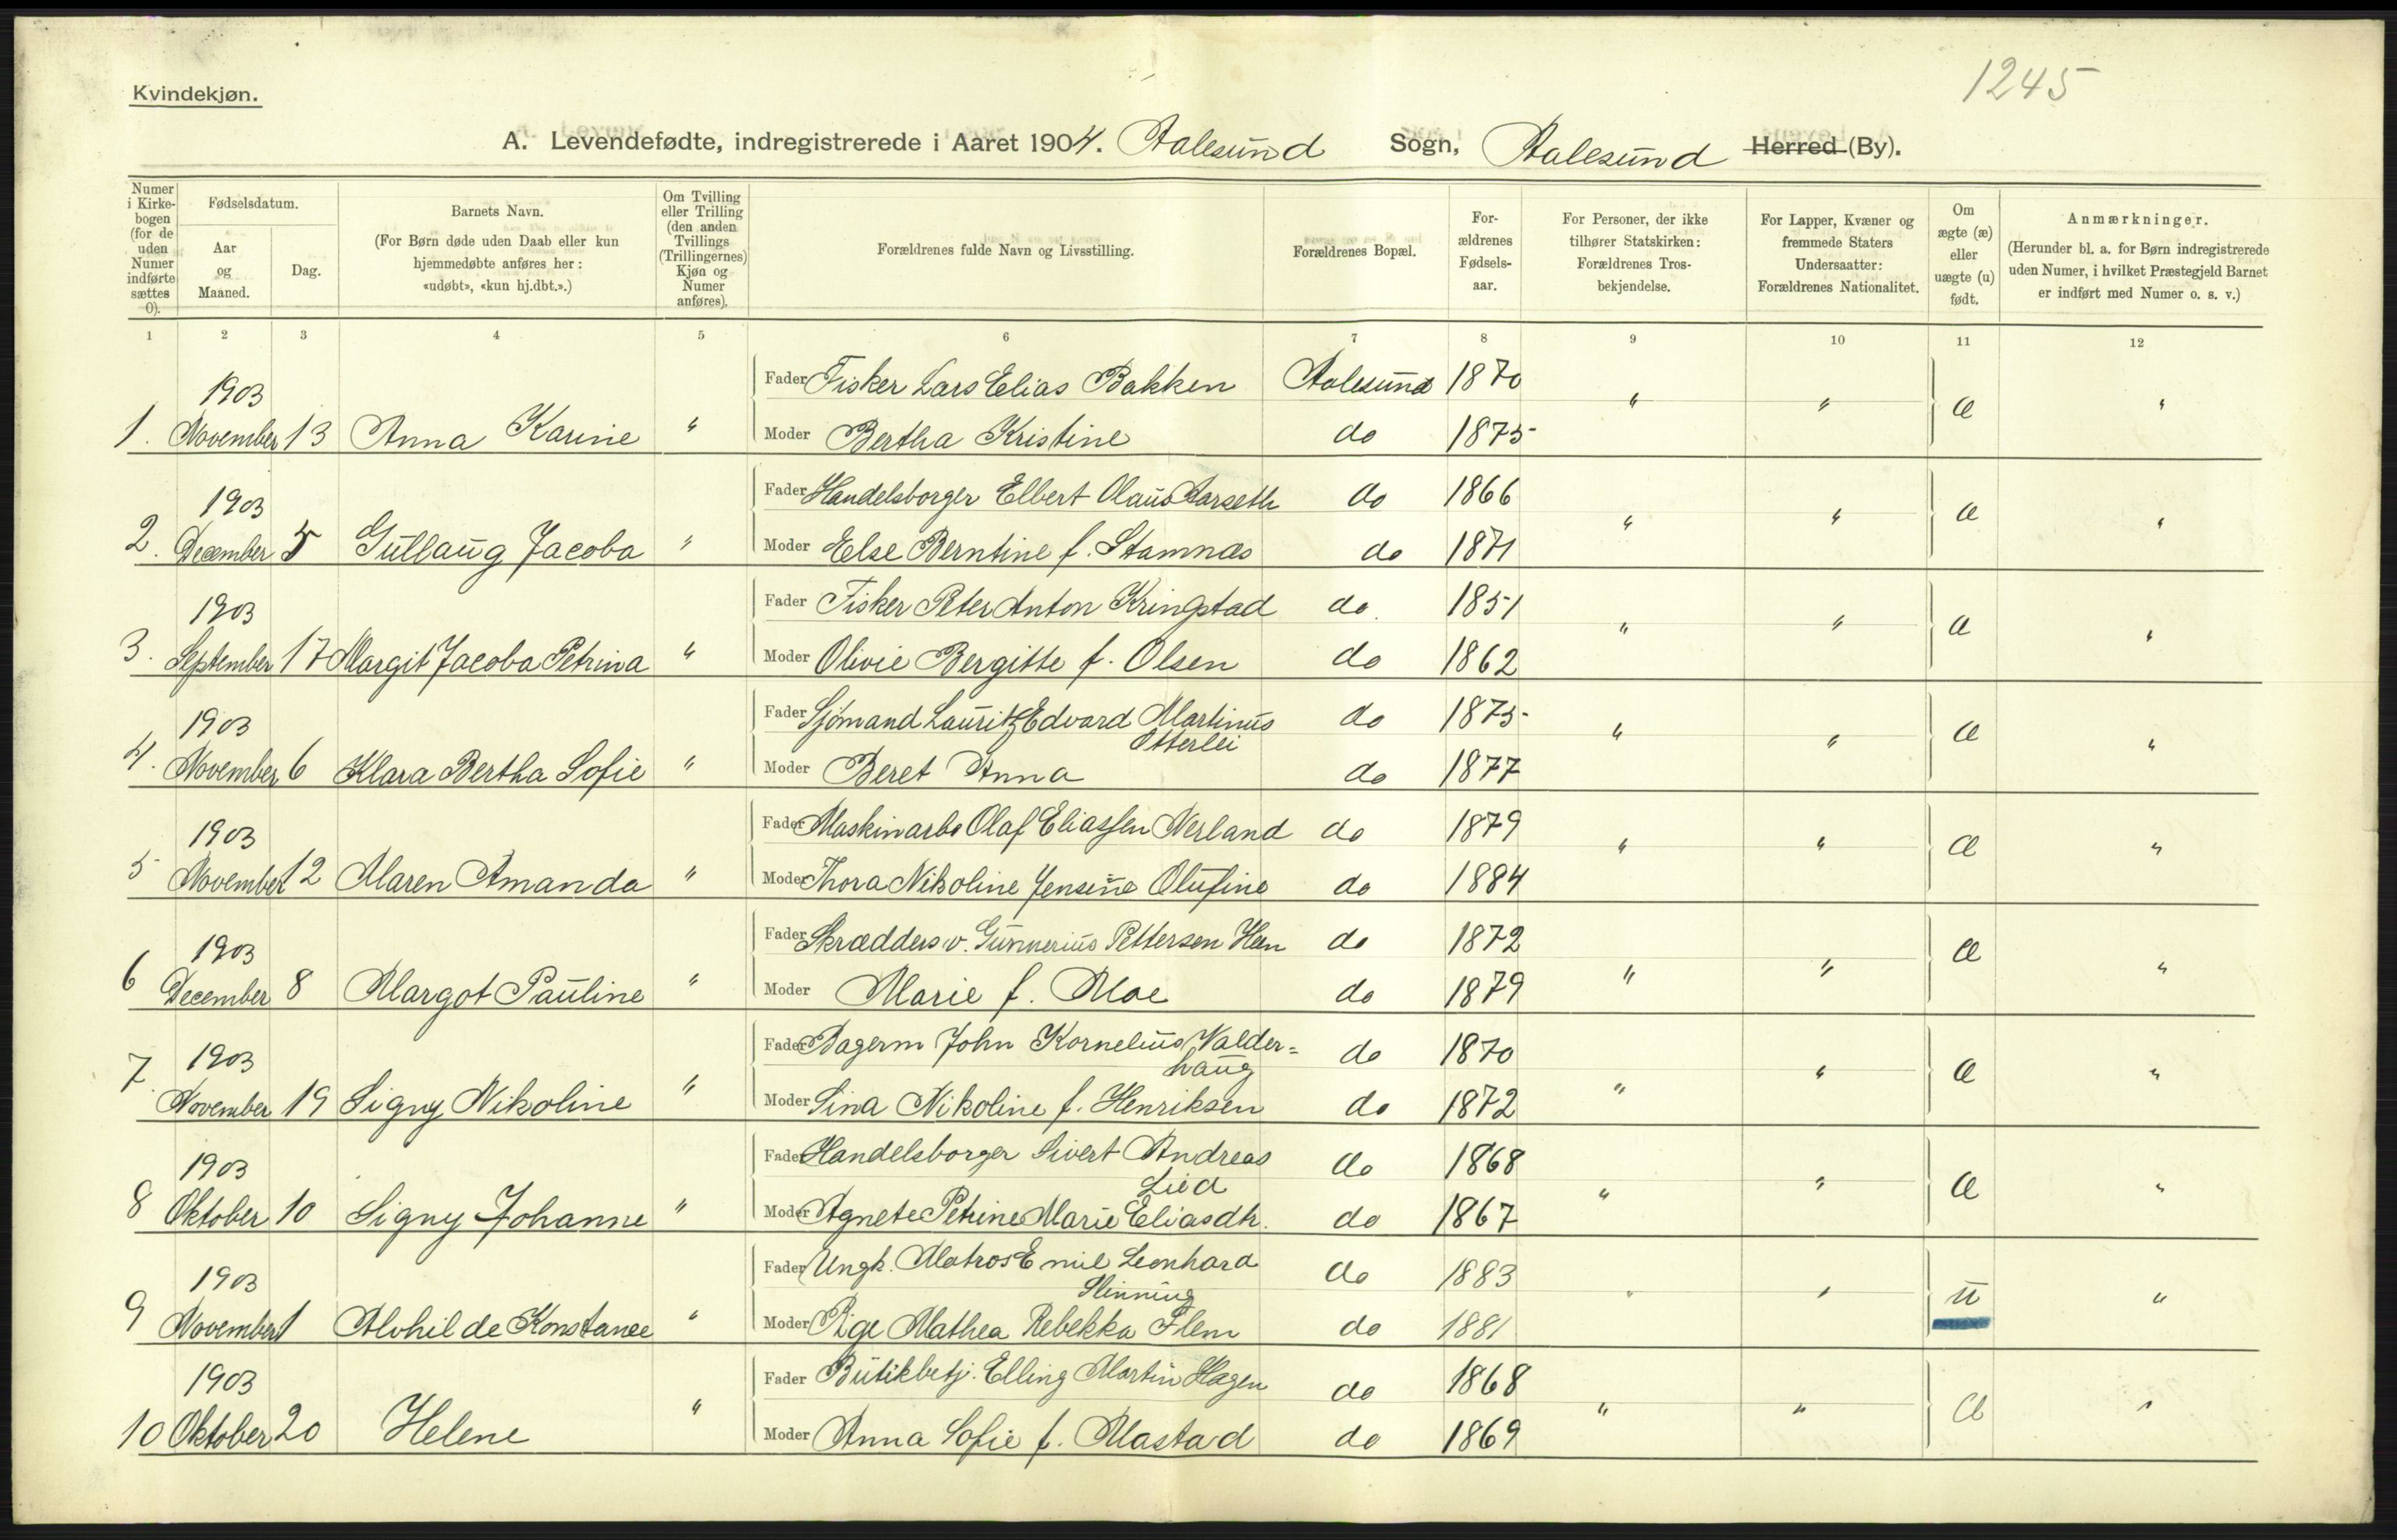 1245
Kvindekjøn.
A. Levendefødte, indregistrerede i Aaret 1904. Aalesund Sogn, Aalesund Herred (By).
Numer i Kirkebogen (for de uden Numer indførte sættes 0).
Fødselsdatum.
Aar og Maaned.
Dag.
Barnets Navn.
(For Børn døde uden Daab eller kun hjemmedøbte anføres her: «udøbt», «kun hj.dbt.».)
Om Tvilling eller Trilling (den anden Tvillings (Trillingernes) Kjøn og Numer anføres).
Forældrenes fulde Navn og Livsstilling.
Forældrenes Bopæl.
Forældrenes Fødselsaar.
For Personer, der ikke tilhører Statskirken: Forældrenes Trosbekjendelse.
For Lapper, Kvæner og fremmede Staters Undersaatter: Forældrenes Nationalitet.
Om ægte (æ) eller uægte (u) født.
Anmærkninger.
(Herunder bl. a. for Børn indregistrerede uden Numer, i hvilket Præstegjeld Barnet er indført med Numer o. s. v.)
1 2 3 4 5 6 7 8 9 10 11 12
1903
Fader Fisker Lars Elias Bakken Aalesund 1870 " " æ "
1. November 13 Anna Karine " Moder Bertha Kristine do 1875
1903
Fader Handelsborger Elbert Olaus Aarseth do 1866 " " æ "
2. December 5 Gullaug Jacoba " Moder Else Berntine f. Stamnæs do 1871
1903
Fader Fisker Peter Anton Kringstad do. 1851 " " æ "
3. September 17 Margit Jacoba Petrina " Moder Olivie Bergitte f. Olsen do 1862
1903
Fader Sjømand Lauritz Edvard Martinus Otterlei do 1875 " " æ "
4. November 6 Klara Bertha Sofie " Moder Beret Anna do 1877
1903
Fader Maskinarb. Olaf Eliassen Nerland do 1879 " " æ "
5 November 12 Maren Amanda " Moder Thora Nikoline Jensine Olufine do 1884
1903
Fader Skrædders v. Gunnerius Pettersen Hen do 1872 " " æ "
6 December 8 Margot Pauline " Moder Marie f. Moe do 1879
1903
Fader Bagerm John Kornelius Valder=
haug do 1870 " " æ "
7. November 19 Signy Nikoline " Moder Sina Nikoline f. Henriksen do 1872
1903
Fader Handelsborger Sivert Andreas
Lied do 1868 " " æ "
8 Oktober 10 Signy Johanne " Moder Agnete Petrine Marie Eliasdtr. do 1867
1903
Fader Ungk. Matros Emil Leonhard
Slinning do 1883 " " u "
9 November 1 Alvhilde Konstance " Moder Pige Mathea Rebekka Flem do 1881
1903
Fader Butikbetj. Elling Martin Hagen do 1868 " " æ "
10 Oktober 20 Helene " Moder Anna Sofie f. Mastad do 1869